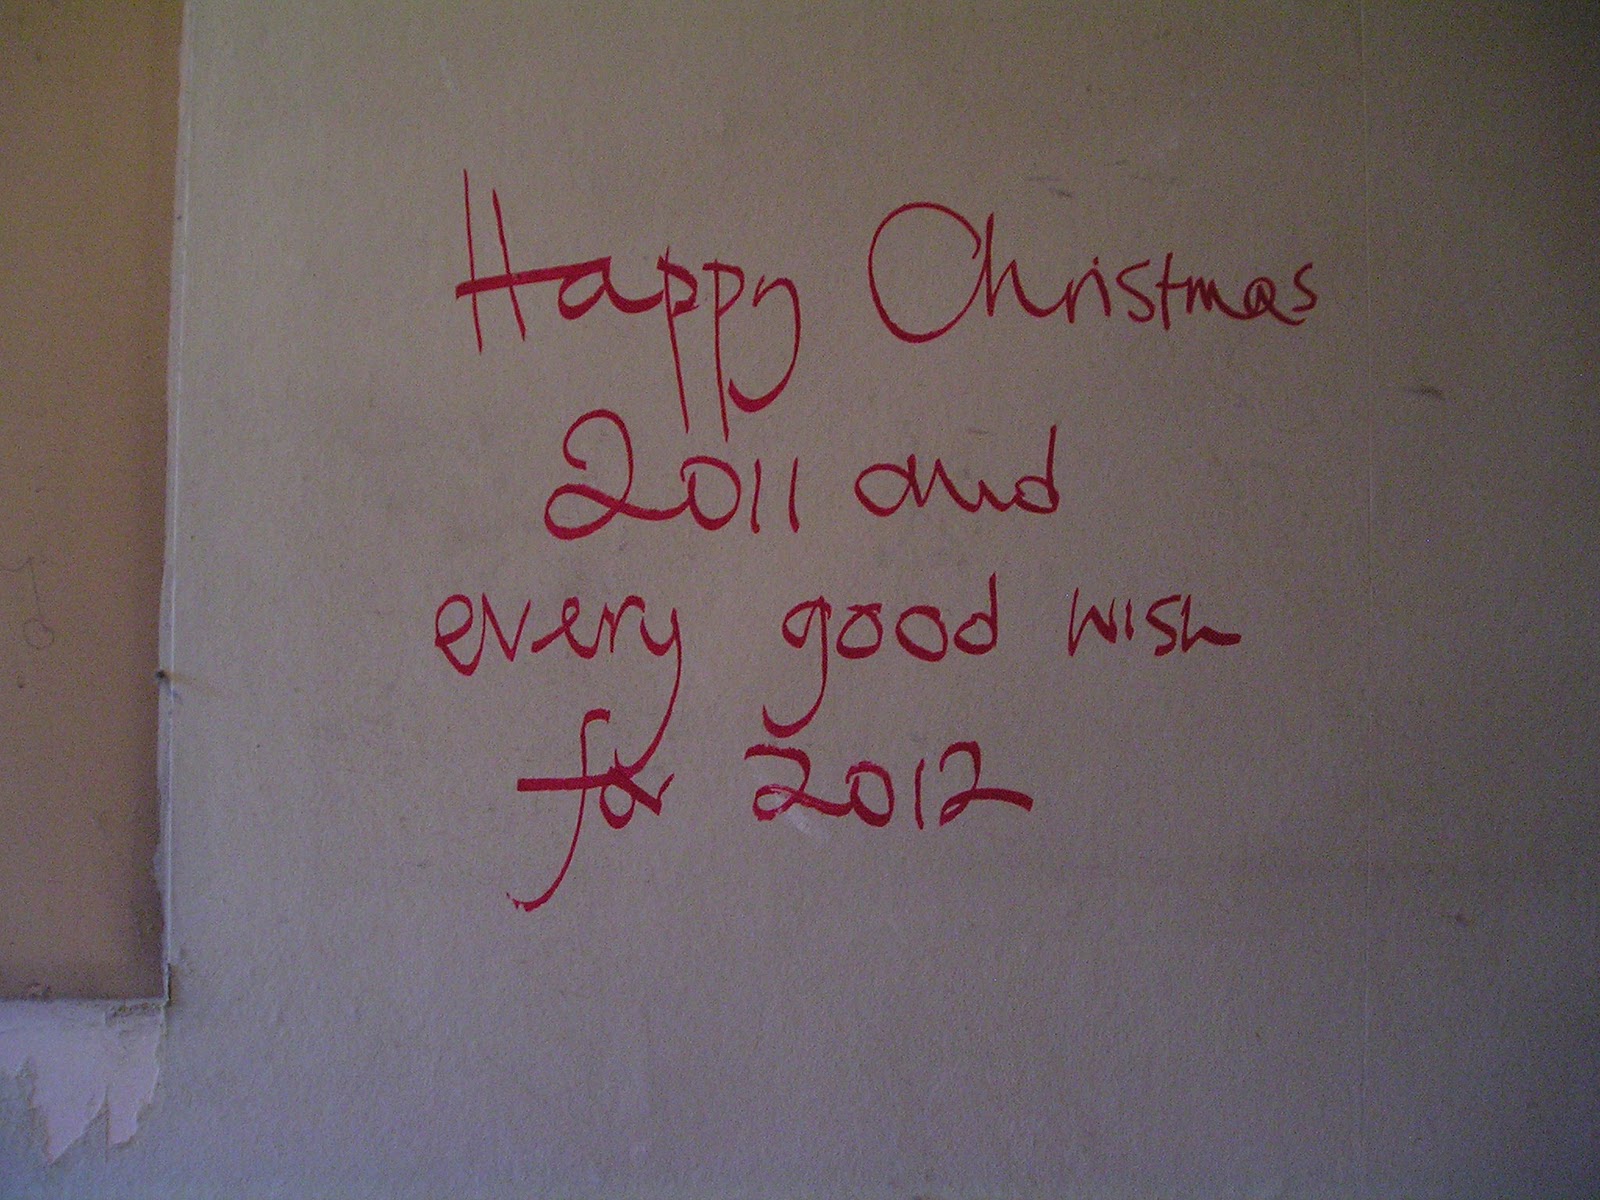 Happy Christmas
2011 and
every good wish
for 2012